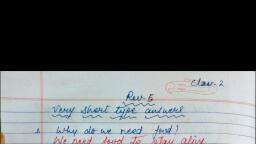 Class-2
Rev-E
Very short type answers
1. Why do we need food?
We need food to stay alive